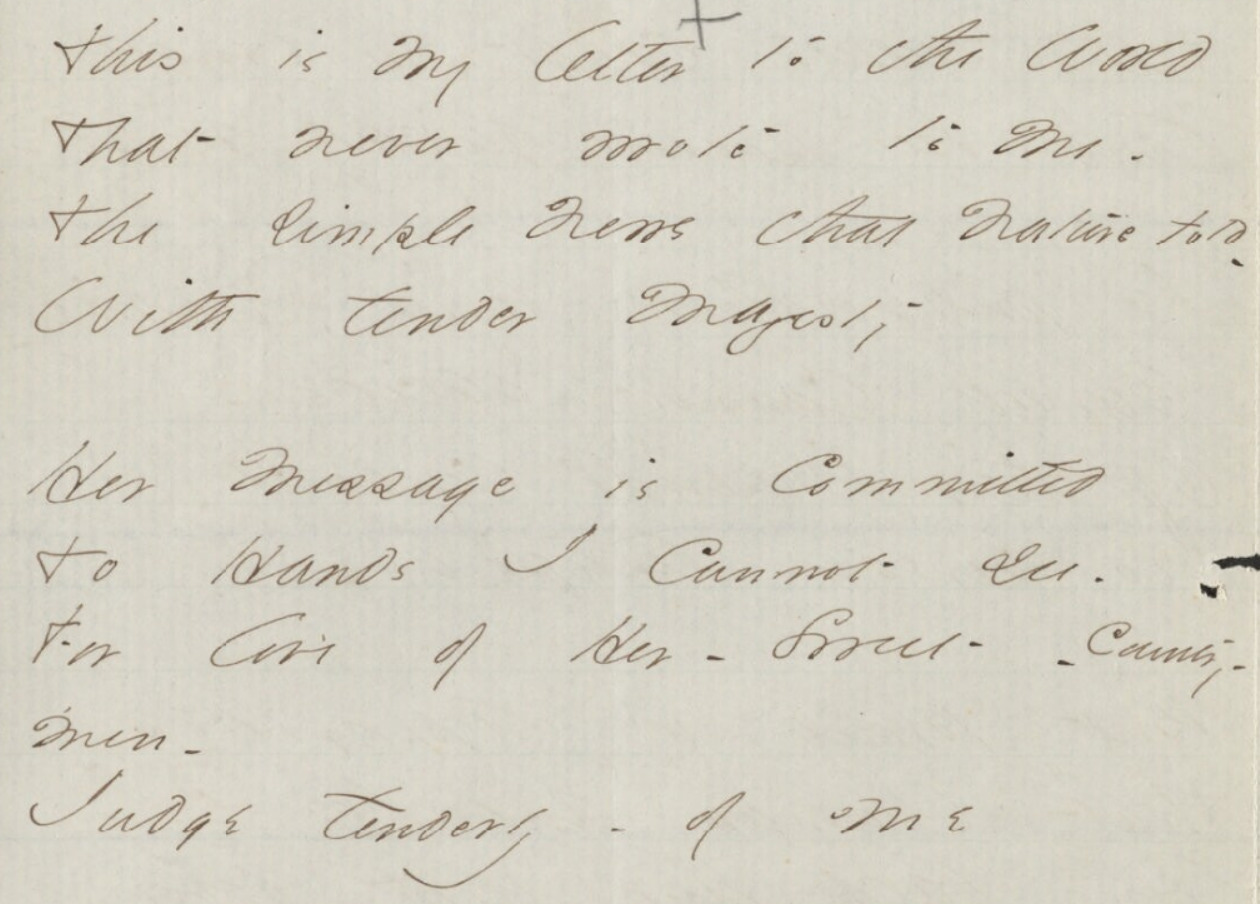 This is my letter to the World
That never wrote to Me -
The simple News that Nature told -
With tender Majesty
Her Message is Committed
To Hands I cannot see -
For love of Her - Sweet - Country -
men -
Judge tenderly - of Me